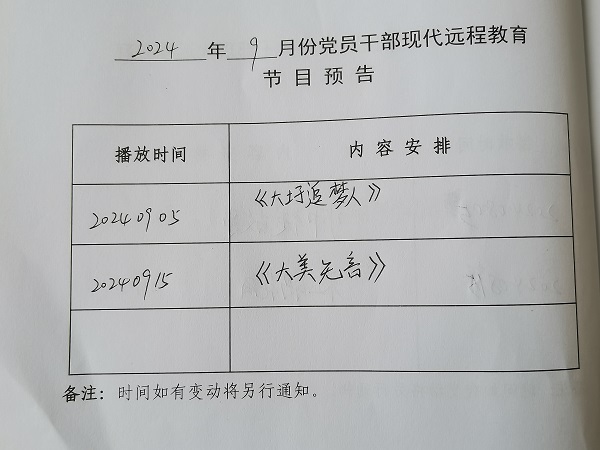 2024年9月份党员干部现代远程教育
节目预告
播放时间 内容安排
20240905 《大圩追梦人》
20240915 《大美无言》
备注：时间如有变动将另行通知。